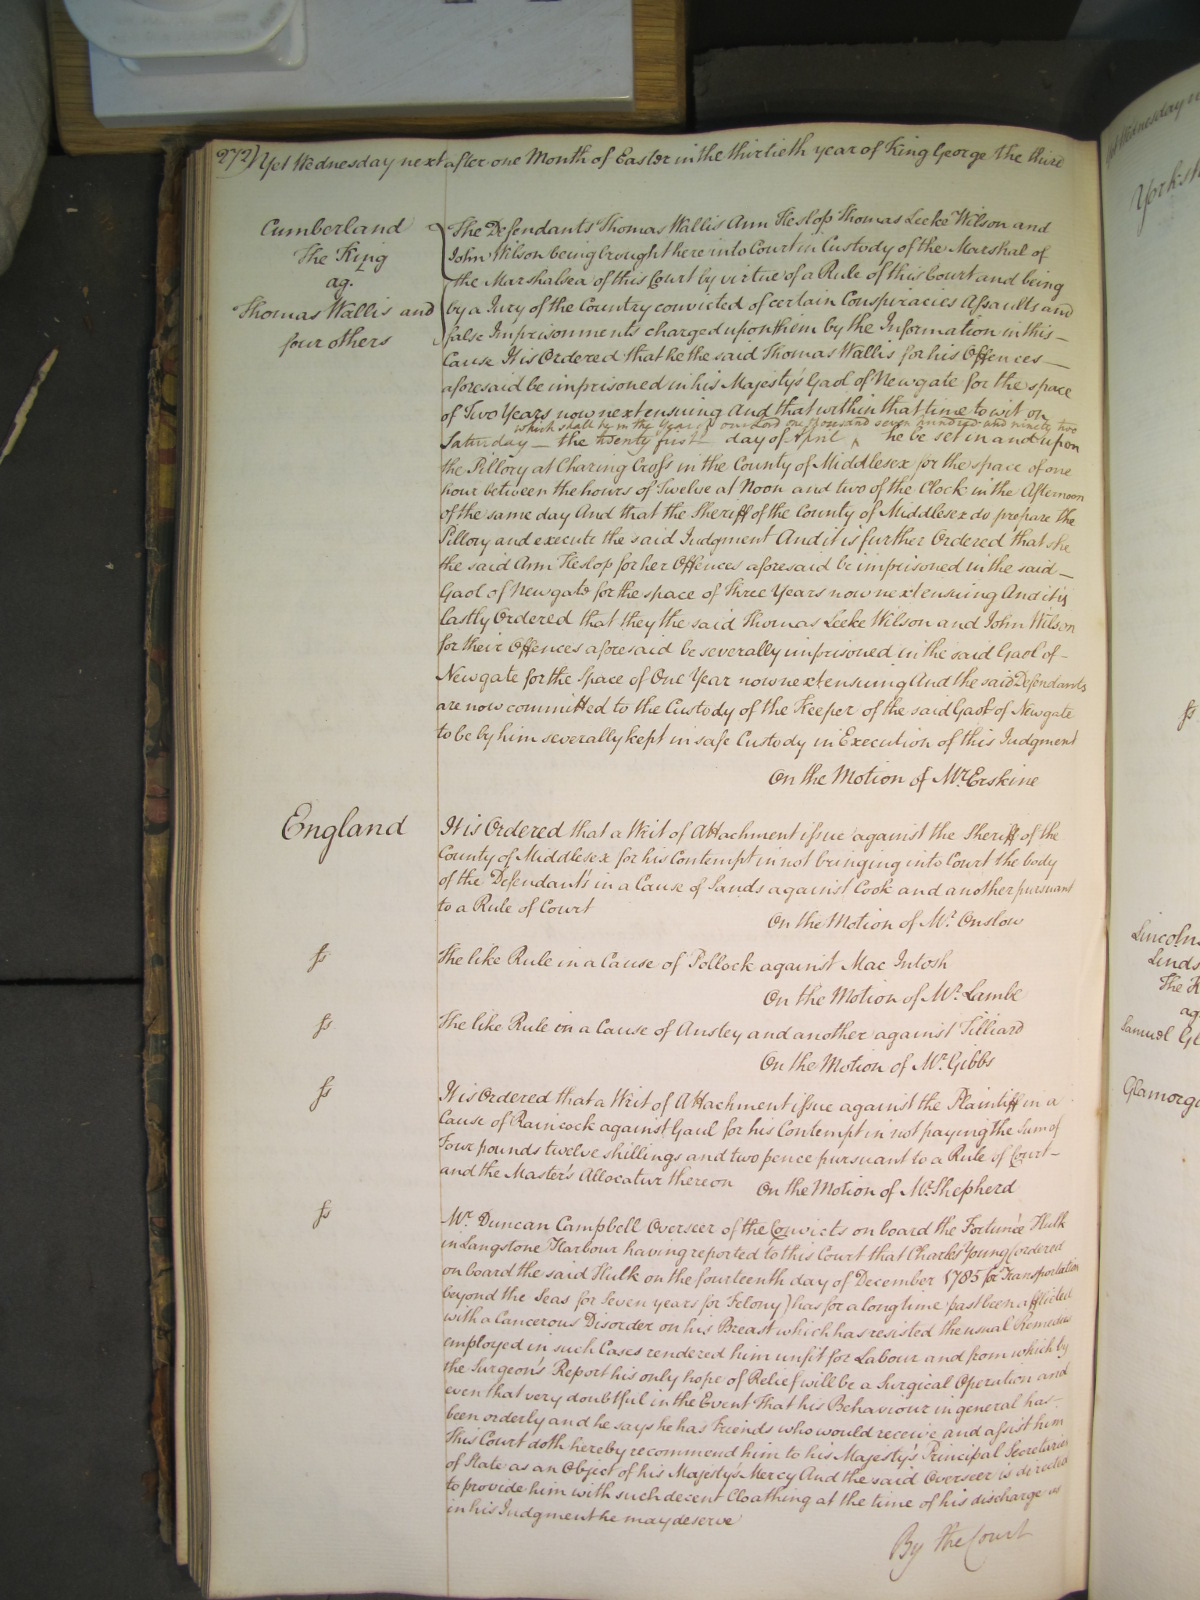 272) Yet Wednesday next after one Month of Easter in the thirtieth year of King George the third
Cumberland
The King
ag.
Thomas Wallis and
four others
The Defendants Thomas Wallis Ann Heslop Thomas Leeke Wilson and
John Wilson being brought here into Court in Custody of the Marshal of
the Marshalsea of this Court by virtue of a Rule of this Court and being
by a Jury of the Country convicted of certain Conspiracies Assaults and
false Imprisonments charged upon them by the Information in this
Cause It is Ordered that he the said Thomas Wallis for his Offences
aforesaid be imprisoned in his Majesty's Gaol of Newgate for the space
of Two Years now next ensuing And that within that time to wit on
which shall be in the year of our Lord one thousand seven hundred and ninety two
Saturday the twenty first day of April ^ he be set in and upon
the Pillory at Charing Cross in the County of Middlesex for the space of one
hour between the hours of Twelve at Noon and two of the Clock in the Afternoon
of the same day And that the Sheriff of the County of Middlesex do prepare the
Pillory and execute the said Judgment And it is further Ordered that she
the said Ann Heslop for her Offences aforesaid be imprisoned in the said
Gaol of Newgate for the space of Three Years now next ensuing And it is
lastly Ordered that they the said Thomas Leeke Wilson and John Wilson
for their Offences aforesaid be severally imprisoned in the said Gaol of
Newgate for the Space of One Year now next ensuing And the said Defendants
are now committed to the Custody of the Keeper of the said Gaol of Newgate
to be by him severally kept in safe Custody in Execution of this Judgment
On the Motion of Mr. Erskine
England
It is Ordered that a Writ of Attachment issue against the Sheriff of the
County of Middlesex for his Contempt in not bringing into Court the body
of the Defendants in a Cause of Sands against Cook and another pursuant
to a Rule of Court
On the Motion of Mr. Onslow
ss
The like Rule in a Cause of Pollock against Mac Intosh
On the Motion of Mr. Lambe
ss
The like Rule in a Cause of Anstey and another against Tilliard
On the Motion of Mr. Gibbs
ss
It is Ordered that a Writ of Attachment issue against the Plaintiff in a
Cause of Raincock against Gaul for his Contempt in not paying the Sum of
Four pounds twelve shillings and two pence pursuant to a Rule of Court
and the Master's Allocatur thereon
On the Motion of Mr. Shepherd
ss
Mr. Duncan Campbell Overseer of the Convicts on board the Fortunee Hulk
in Langstone Harbour having reported to this Court that Charles Young (ordered
on board the said Hulk on the fourteenth day of December 1785 for Transportation
beyond the Seas for Seven years for Felony) has for a long time past been afflicted
with a Cancerous Disorder on his Breast which has resisted the usual Remedies
employed in such Cases rendered him unfit for Labour and from which by
the Surgeon's Report his only hope of Relief will be a Surgical Operation and
even that very doubtful in the Event That his Behaviour in general has
been orderly and he says he has Friends who would receive and assist him
This Court doth hereby recommend him to his Majesty's Principal Secretaries
of State as an Object of his Majesty's Mercy And the said Overseer is directed
to provide him with such decent Cloathing at the time of his discharge as
in his Judgment he may deserve
By the Court
Lincoln
Linds
The K
ag.
Samuel Gl
Glamorga